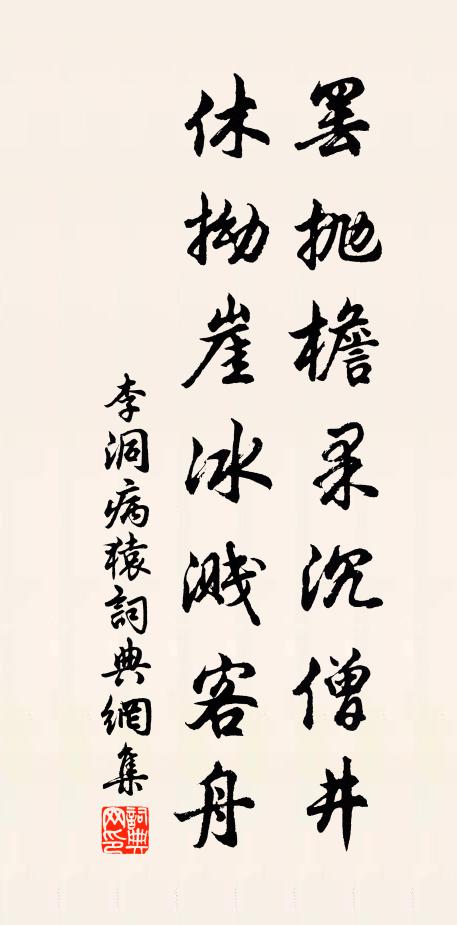 罢抛檐果沉僧井
休拗崖冰溅客舟
李洞病猿詞典網集
詞典網印